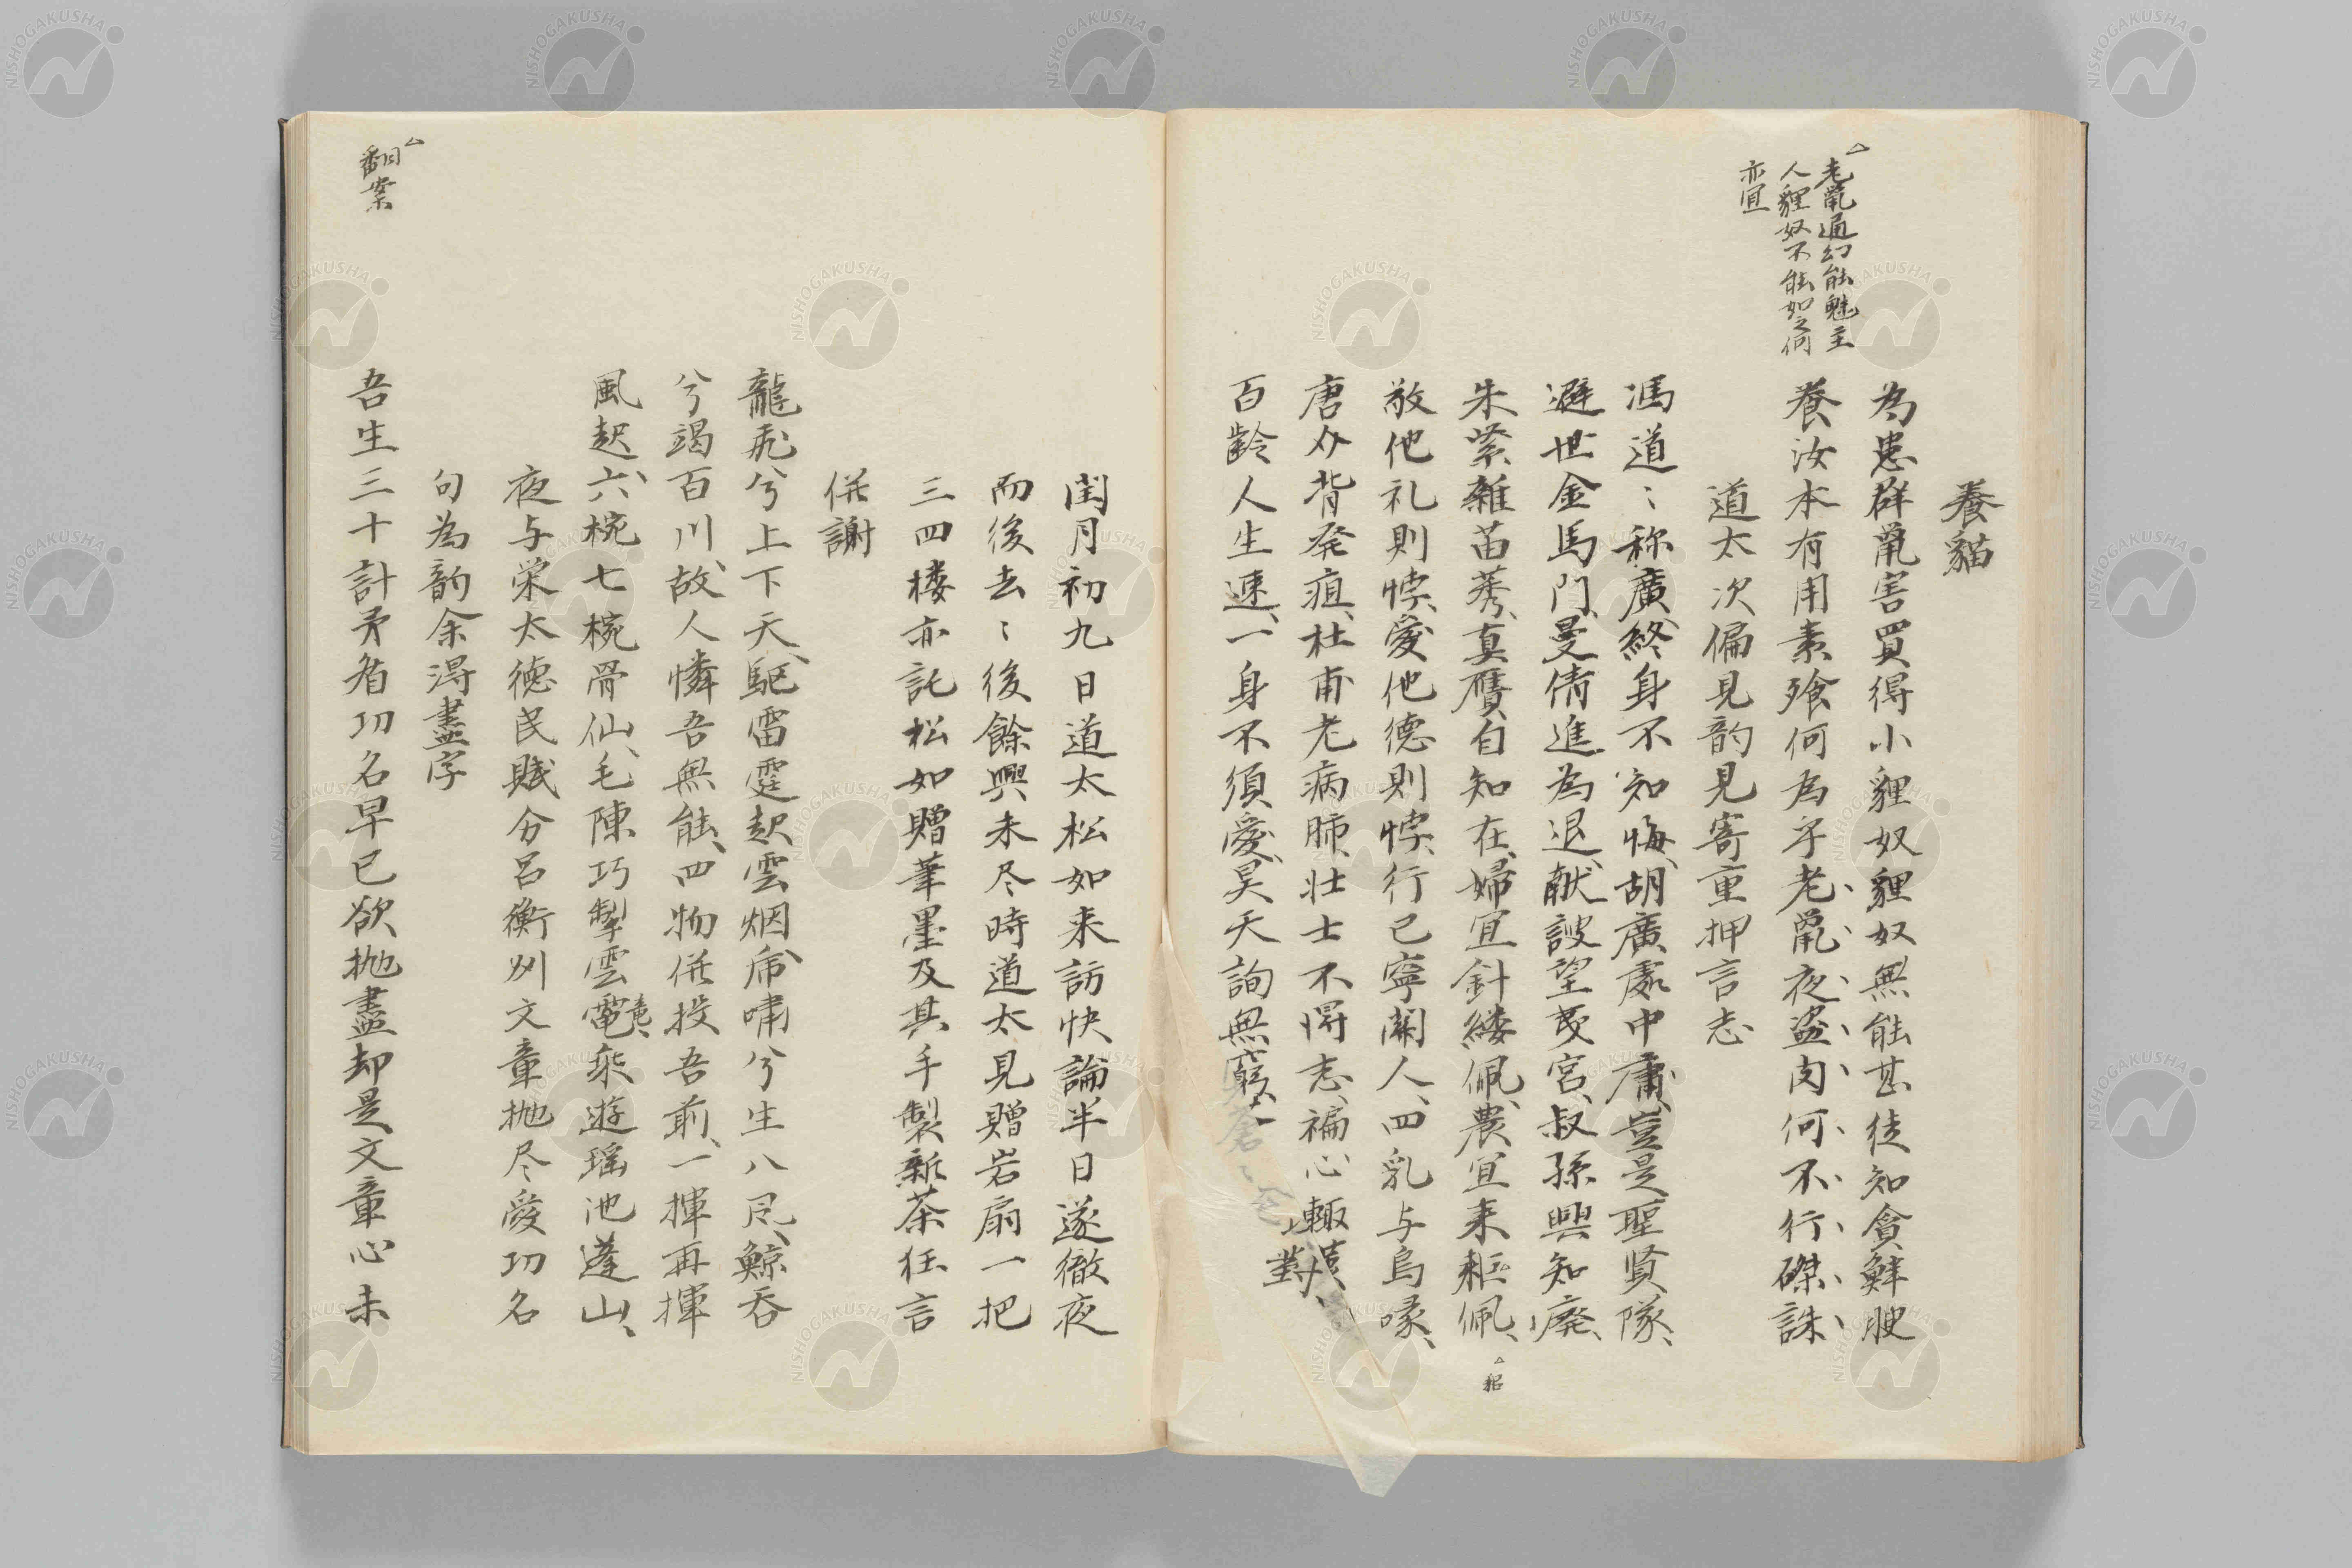 養貓
為患群鼠害買得小貍奴貍奴無能甚徒知貪鮮腴
養汝本有用素飱何為乎老鼠夜盗肉何不行磔誅
老鼠通幻能魅主
人貍奴不能如之何
亦宜
道太次偏見韵見寄重押言志
馮道〻称廣終身不知悔胡廣處中庸豈是聖賢隊
避世金馬門曼倩進為退献諛望夷宮叔孫興知廢
朱紫雜苗莠真贋自知在婦宜針縷佩農宜耒耟佩
△貂
敬他礼則悖愛他德則悖行己寧關人四乳与烏喙
唐介背発疽杜甫老病肺壮士不得志褊心輙憤
百齡人生速一身不須愛昊天詢無窮蒼〻
對
閏月初九日道太松如来訪快論半日遂徹夜
而後去〻後餘興未尽時道太見贈岩扇一把
三四楼亦託松如贈筆墨及其手製新茶狂言
併謝
龍飛兮上下天駆雷霆起雲烟席嘯兮生八凮鯨呑
兮竭百川故人憐吾無能四物併投吾前一揮再揮
風起六椀七椀骨仙毛陳巧掣雲電乘遊瑶池蓬山
夜与栄太德民賦分呂衡州文章抛尽愛功名
句為韵余得盡字
△
翻案
吾生三十計矛盾功名早已欲抛盡却是文章心未